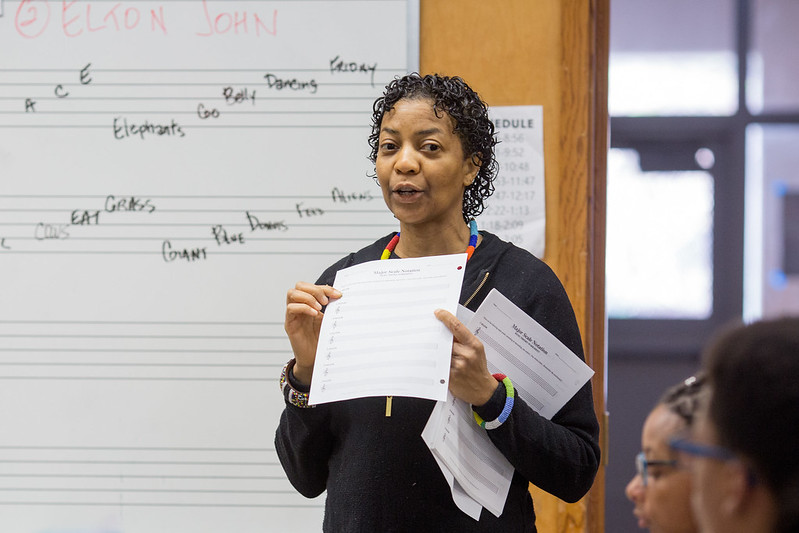 ② ELTON JOHN
A C E
Elephants Go Belly Dancing FRIDAY
COWS EAT GRASS
GIANT BLUE DONUTS FEED ALIENS
EDULE
8:56
-9:52
-10:48
-11:47
-12:17
2-1:13
1:18-2:09
Major Scale Notation
Major Scale Notation